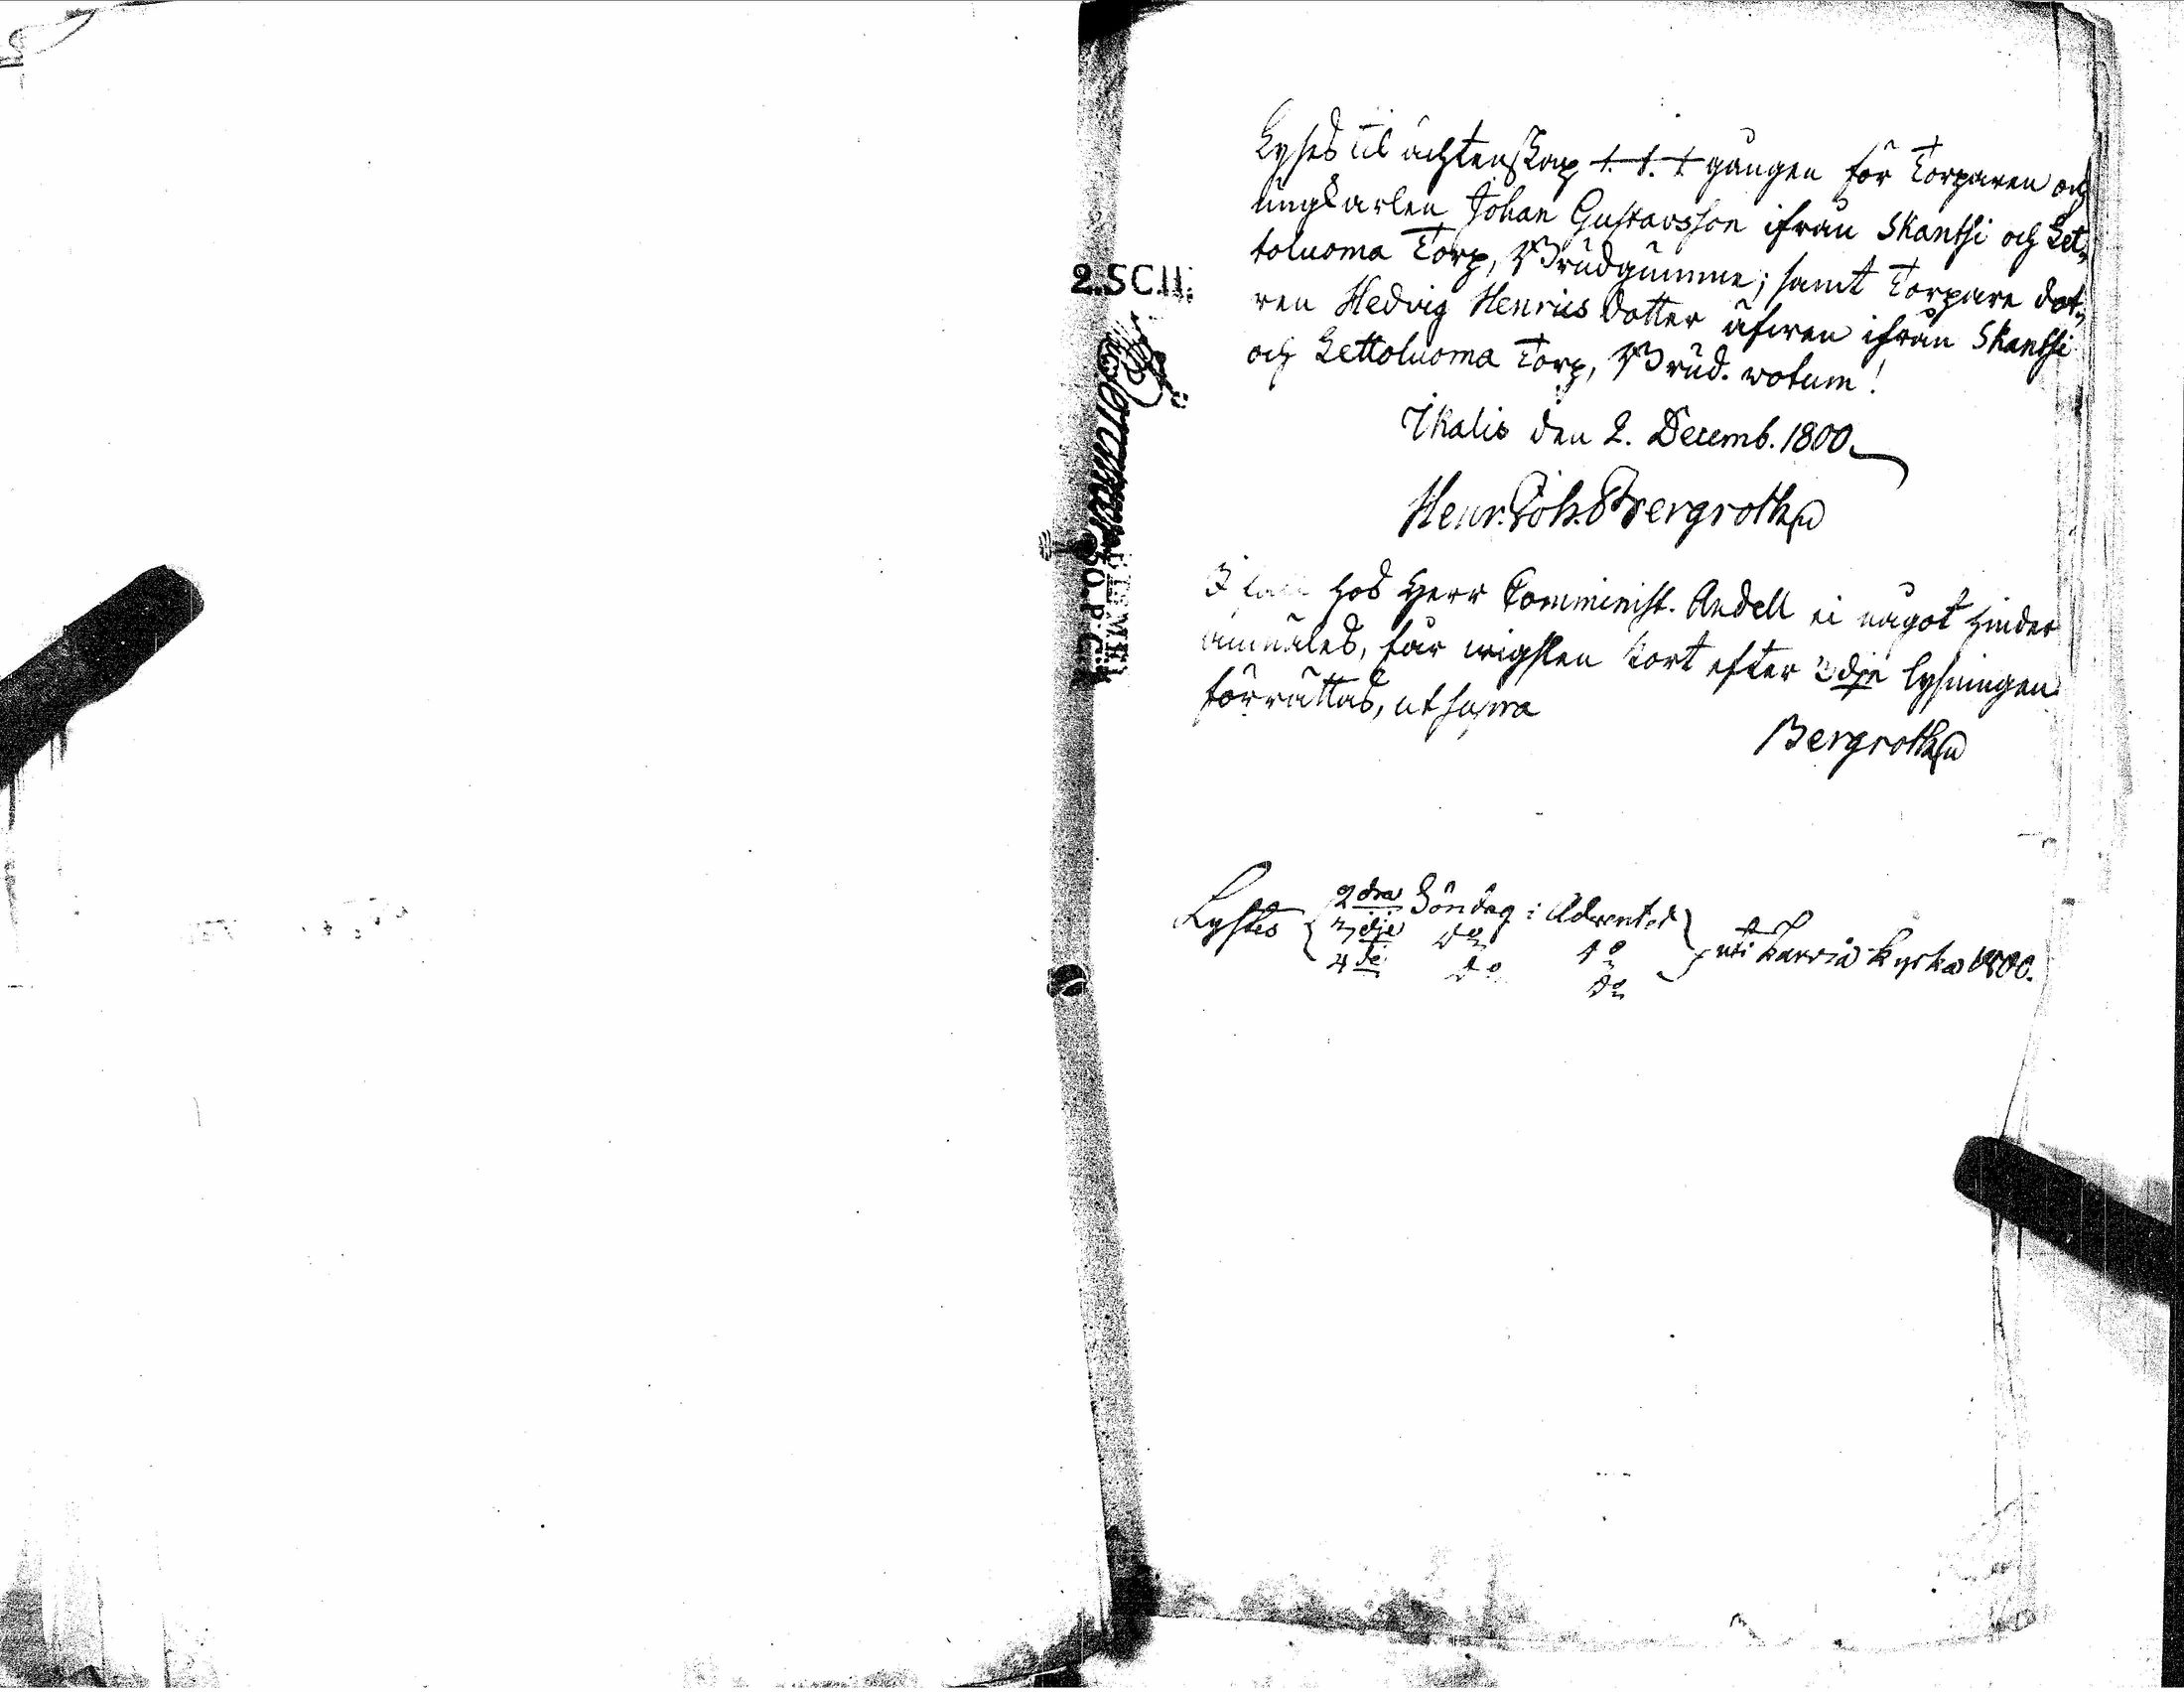 Lyses til ächtenskap 1. 1. 1 gången för Torparen och
ungkarlen Johan Gustavsson ifrån Skantsi och Let„
toluoma Torp, Brudgumme; samt Torpare dot„
ren Hedvig Henrics dotter äfwen ifrån Skantsi
och Lettoluoma Torp, Brud. wotum!
Ikalis den 2. Decemb. 1800
Henr. Joh. Bergroth
I fall hos Herr Comminist. Andell ei något hinder
anmäles, får wigslen kort efter 3dje lysningen
förrättas, ut supra
Bergroth
2.SC.II.
Lystes 2dra Söndag i Adventet
3dje do do uti Karvia Kyrka 1800.
4de do do